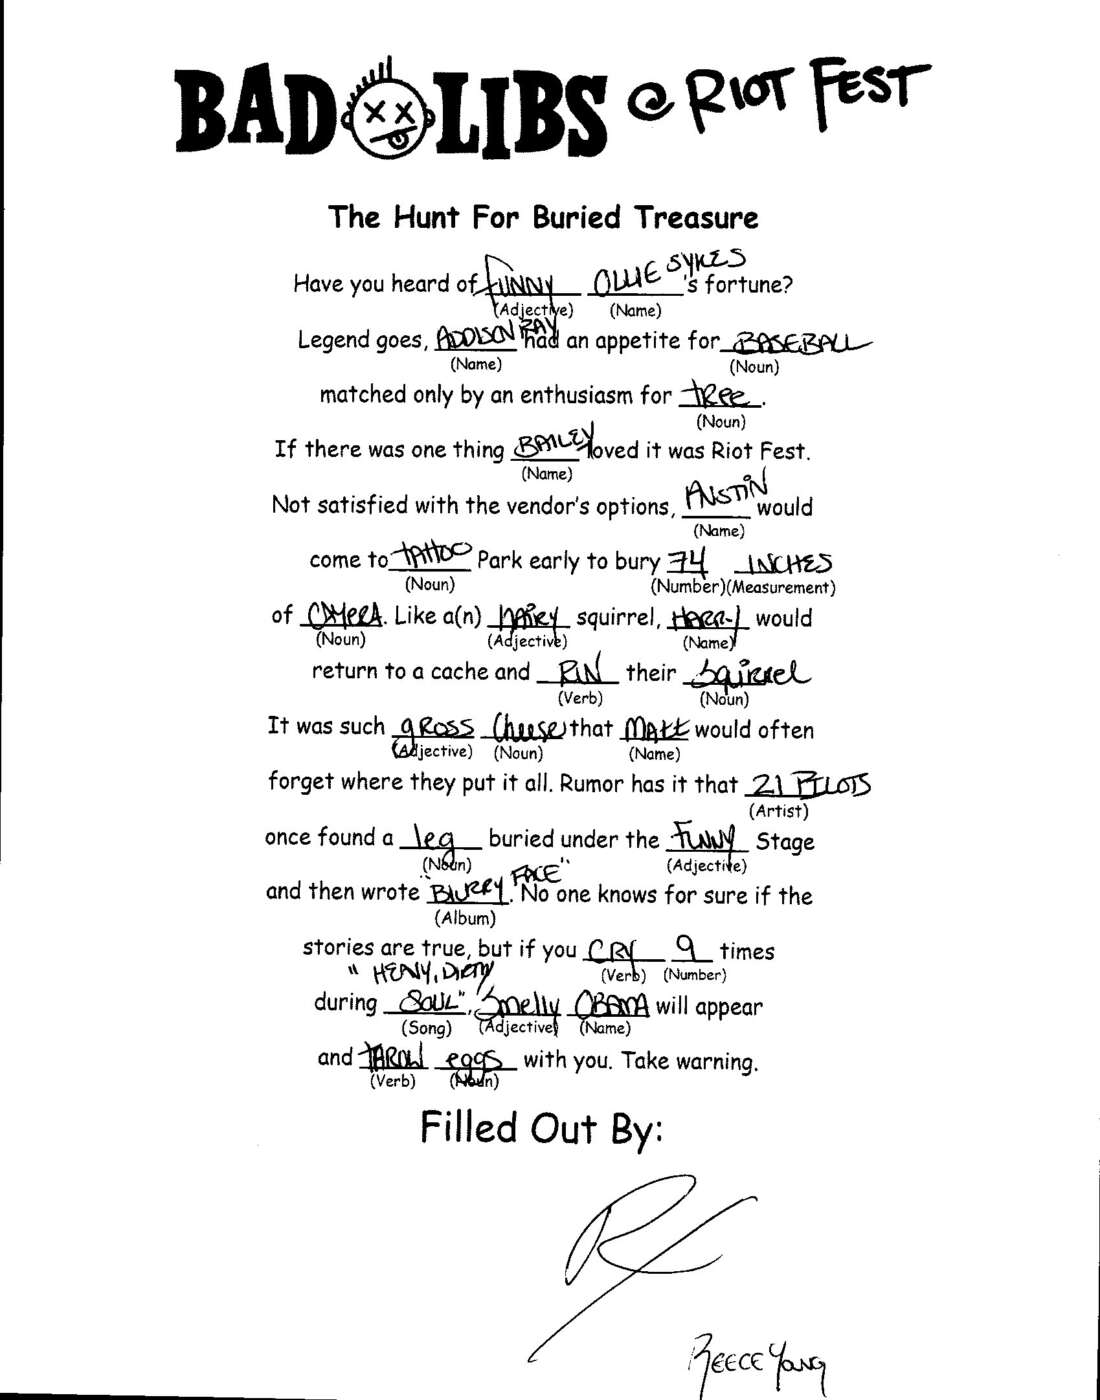 BAD LIBS @ RIOT FEST
The Hunt For Buried Treasure
Have you heard of FUNNY OLLIE SYKES 's fortune?
(Adjective) (Name)
Legend goes, ADDISON RAY had an appetite for BASEBALL
(Name) (Noun)
matched only by an enthusiasm for tree.
(Noun)
If there was one thing BAILEY loved it was Riot Fest.
(Name)
Not satisfied with the vendor's options, AUSTIN would
(Name)
come to TATTOO Park early to bury 74 INCHES
(Noun) (Number)(Measurement)
of CAMERA. Like a(n) HAIRY squirrel, HARRY would
(Noun) (Adjective) (Name)
return to a cache and RUN their Squirrel
(Verb) (Noun)
It was such gROSS Cheese that MATT would often
(Adjective) (Noun) (Name)
forget where they put it all. Rumor has it that 21 PILOTS
(Artist)
once found a leg buried under the FUNNY Stage
(Noun) (Adjective)
and then wrote "BLURRY FACE". No one knows for sure if the
(Album)
stories are true, but if you CRY 9 times
(Verb) (Number)
during "HEAVY, DIRTY SOUL", Smelly OBAMA will appear
(Song) (Adjective) (Name)
and THROW eggs with you. Take warning.
(Verb) (Noun)
Filled Out By:
REECE YOUNG